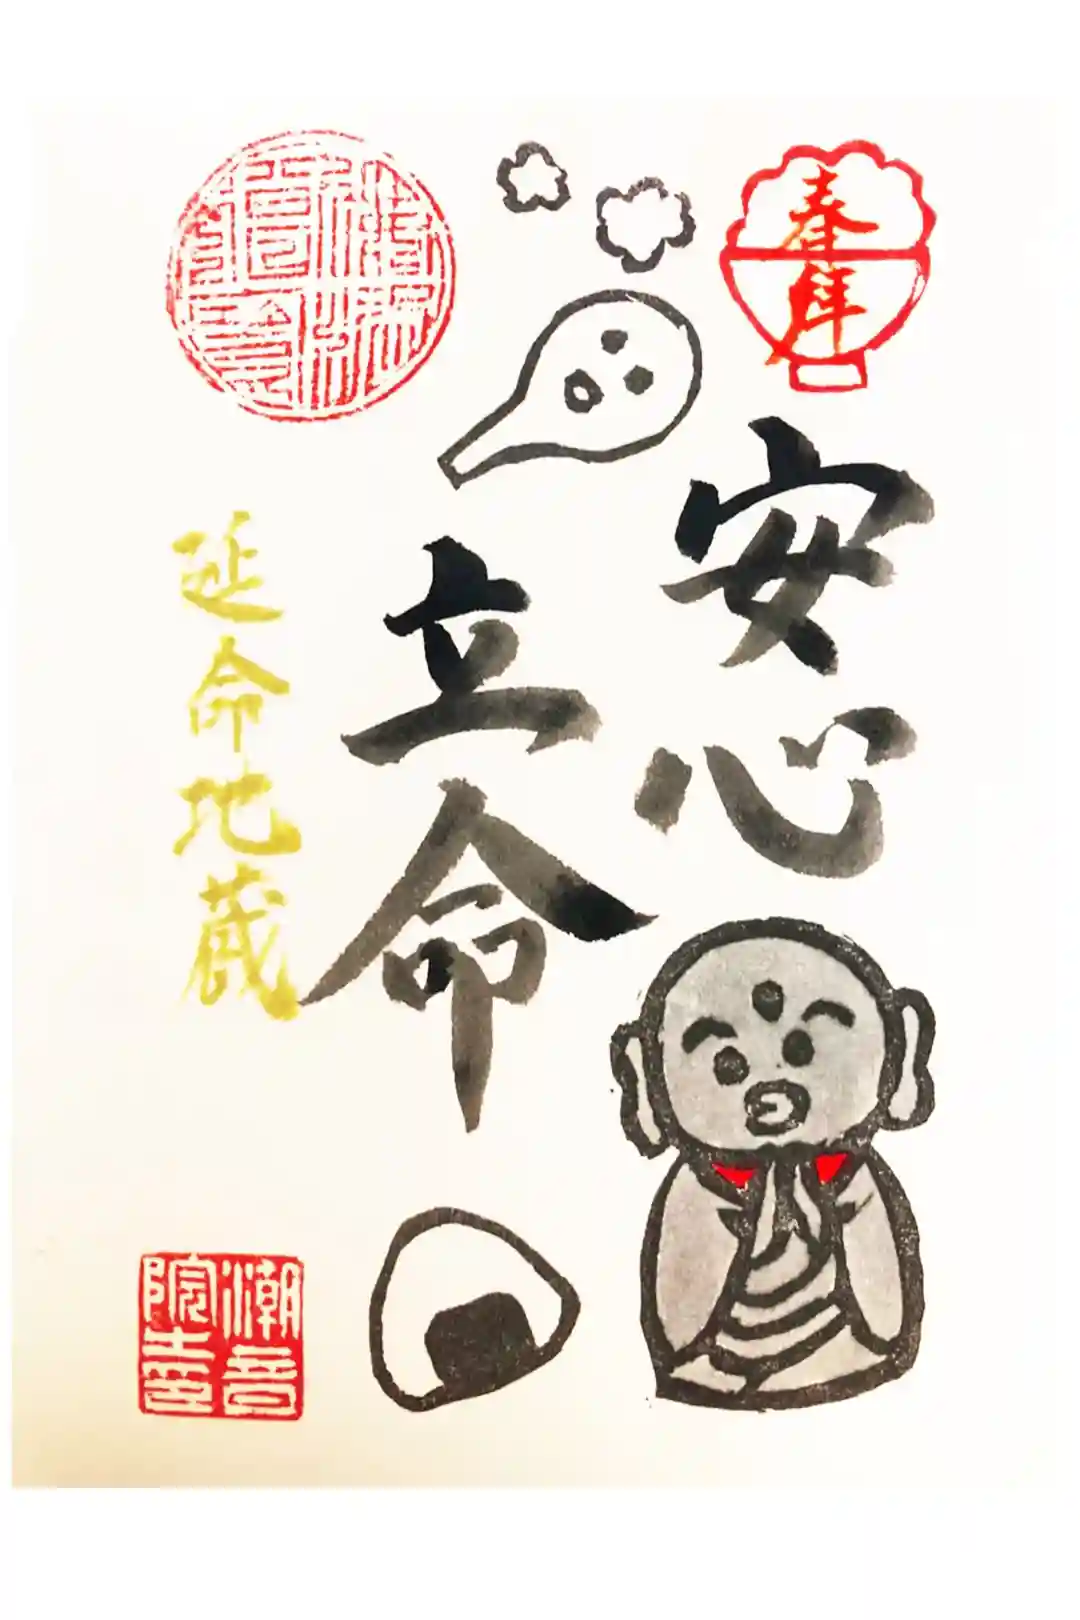 奉拝
安心
立命
延命地蔵
潮音
院主